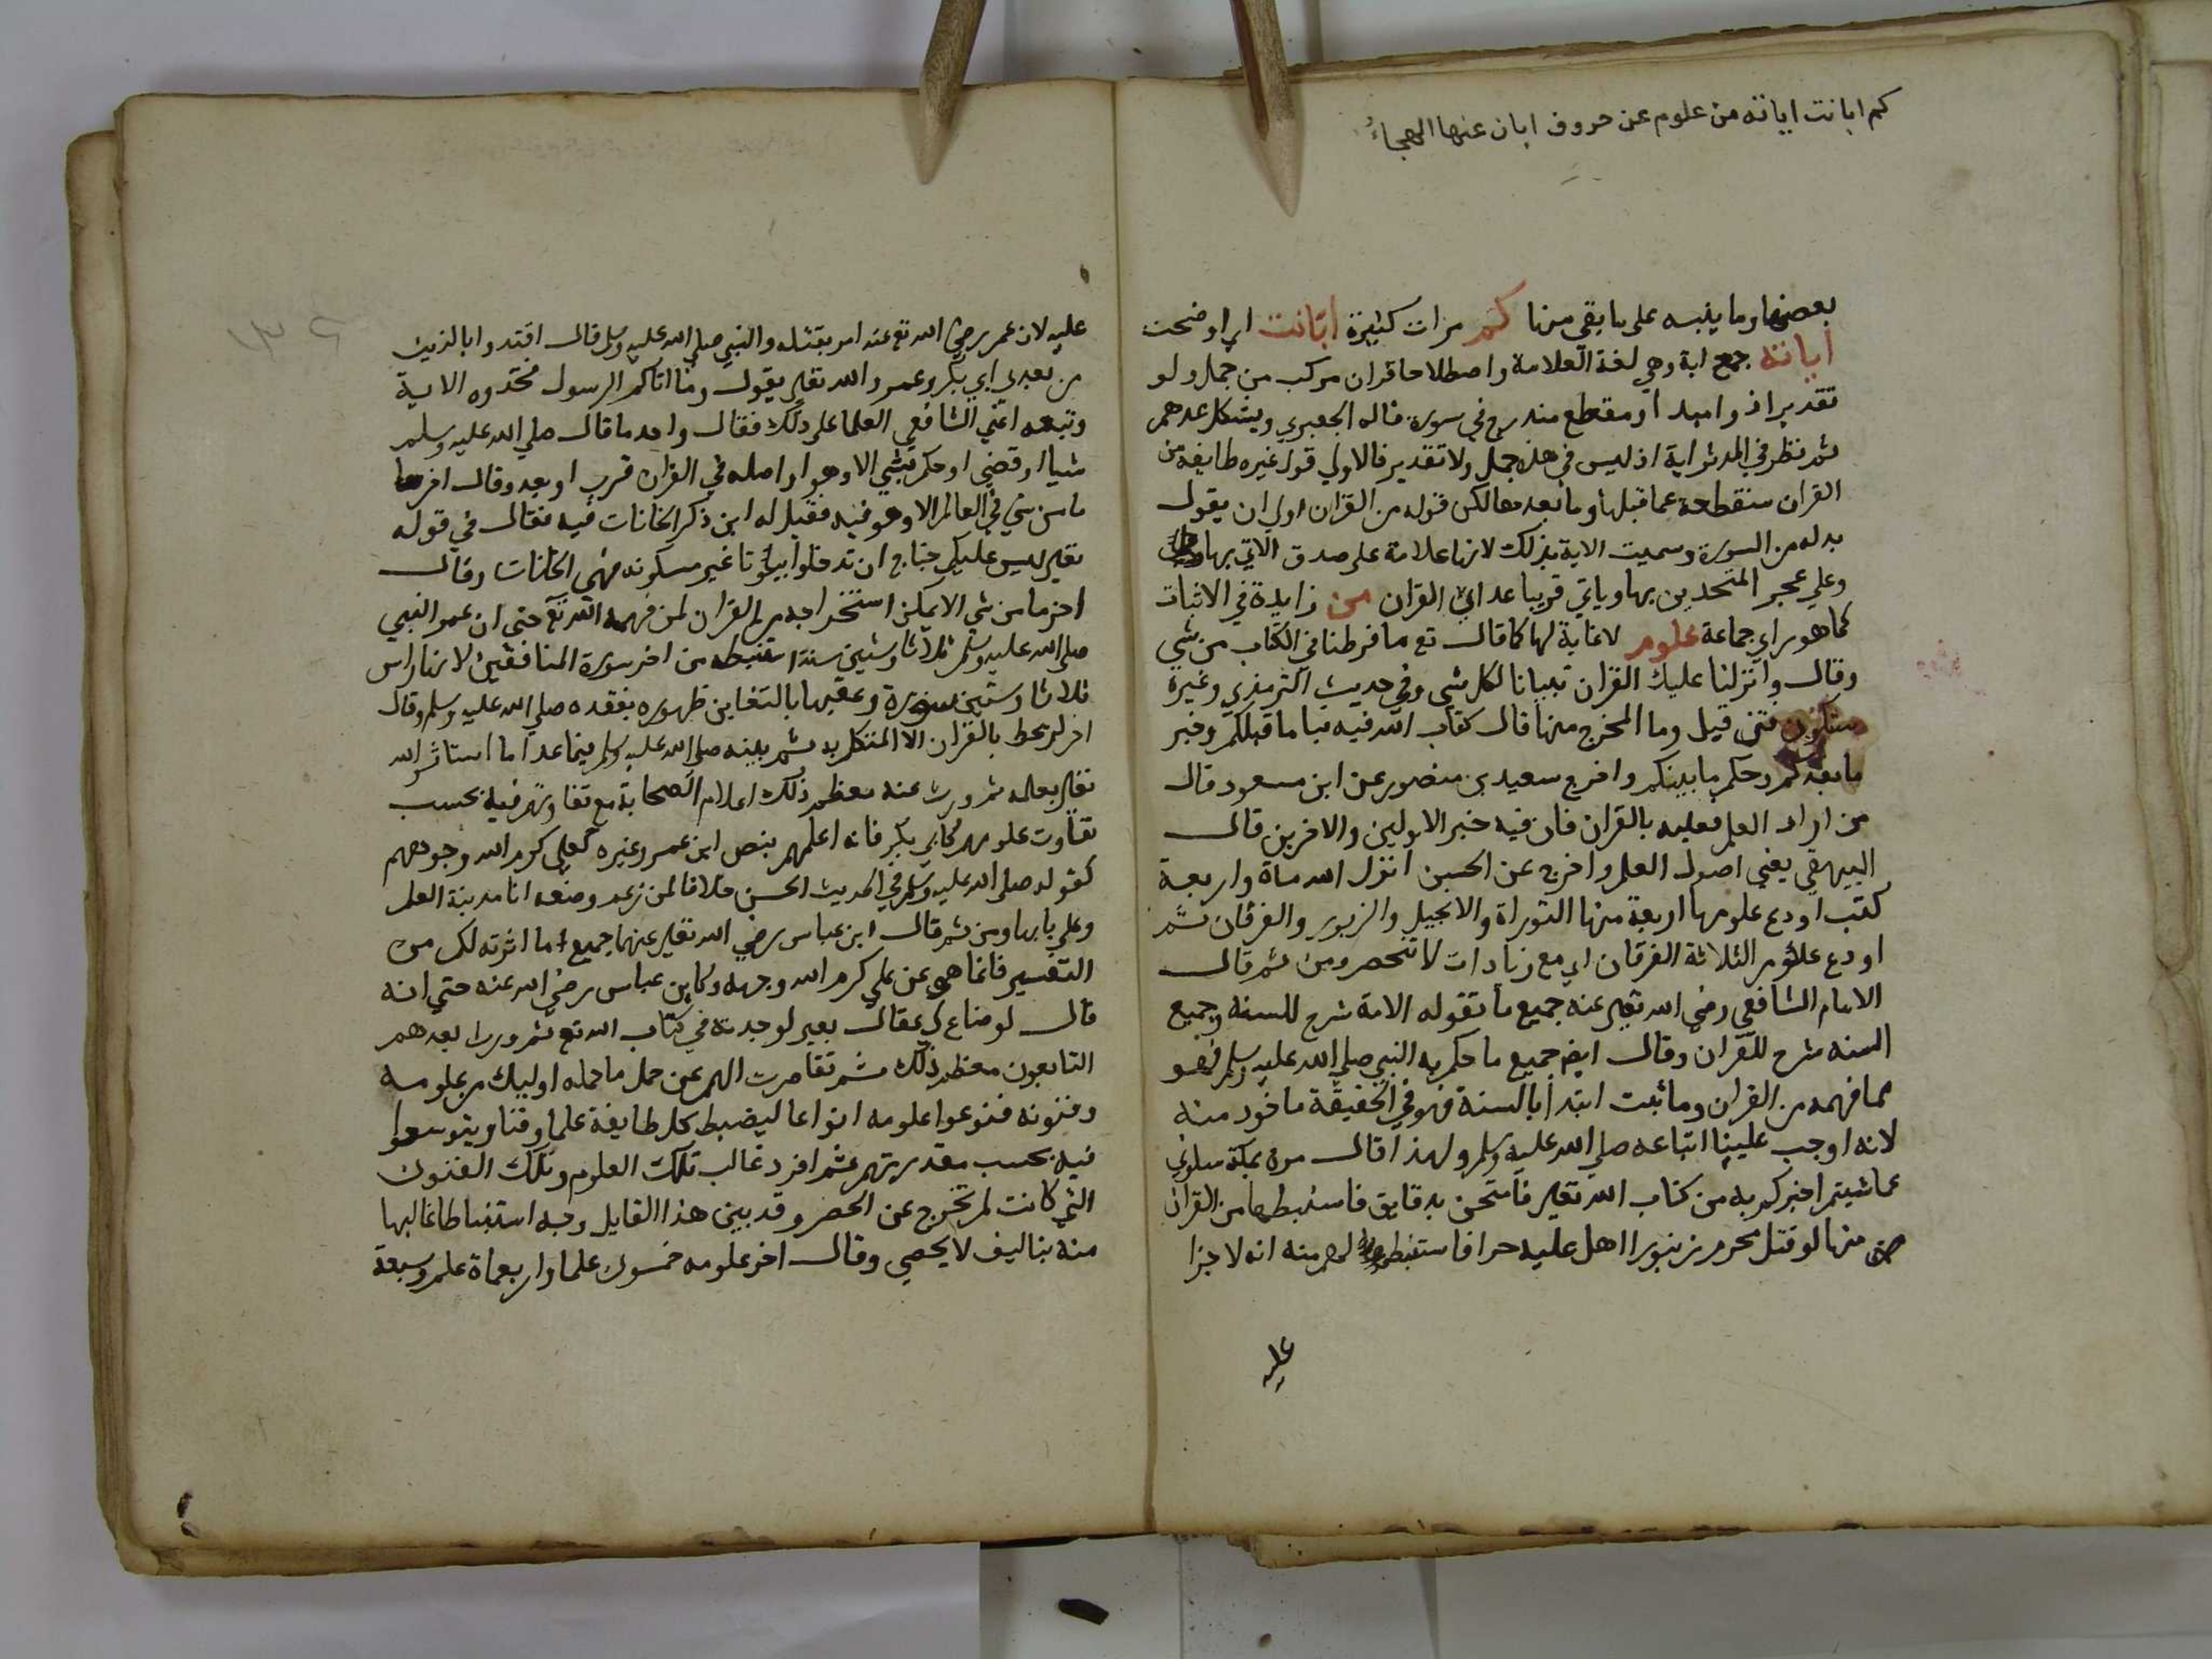 كم ابانت اياته من علوم عن حروف ابان عنها الهجاءُ
بعضها وما ينبه على ما بقي منها كم مرات كثيرة ابانت اي اوضحت
اياته جمع اية وهي لغة العلامة واصطلاحا قران مركب من جمل ولو
تقديرا ذو امبدا او مقطع مندرج في سورة قاله الجعبري ويشكل عدهم
ثم نظر في المدثر اية اذ ليس في هذه جمل ولا تقدير فالاولي قول غيره طايفة من
القران منقطعة عما قبلها وما بعدها لكن قوله من القران اولي ان يقول
بدله من السورة وسميت الاية بذلك لانها علامة على صدق الاتي بها
وعلي عجز المتحدين بها وياتي قريبا عد اي القران من زايدة في الاثبات
كما هو راي جماعة علوم لا غاية لها كما قال تع ما فرطنا في الكتاب من شي
وقال وانزلنا عليك القران تبيانا لكل شي وفي حديث الترمذي وغيره
ستكون فتن قيل وما المخرج منها قال كتاب الله فيه نبا ما قبلكم وخبر
ما بعدكم وحكم ما بينكم واخرج سعيد بن منصور عن ابن مسعود قال
من اراد العلم فعليه بالقران فان فيه خبر الاولين والاخرين قال
البيهقي يعني اصول العلم واخرج عن الحسن انزل الله ماة واربعة
كتب اودع علومها اربعة منها التوراة والانجيل والزبور والفرقان ثم
اودع علوم الثلاثة الفرقان اي مع زيادات لا تنحصر ومن ثم قال
الامام الشافعي رضي الله تعالى عنه جميع ما تقوله الامة شرح للسنة وجميع
السنه شرح للقران وقال ايض جميع ما حكم به النبي صلى الله عليه وسلم فهو
مما فهمه من القران وما ثبت ابتدا بالسنة فهو في الحقيقة ماخوذ منه
لانه اوجب علينا اتباعه صلى الله عليه وسلم ولهذا قال مرة بمكة سلوني
عما شيتم اخبركم به من كتاب الله تعالى فامتحن بدقايق فاستنبطها من القران
منها لو قتل محرم زنبورا اهل عليه حرا فاستنبط لهم منه انه لا جزا
عليه
عليه لان عمر رضي الله تع عنه امر بقتله والنبي صلى الله عليه وسلم قال اقتدوا بالذين
من بعدي ابي بكر وعمر والله تعالى يقول وما اتاكم الرسول فخذوه الاية
وتبعه اعني الشافعي العلما على ذلك فقال واحد ما قال صلى الله عليه وسلم
شيا او قضى او حكم بشي الا وهو او اصله في القران قرب او بعد وقال اخر
ما من شي في العالم الا وهو فيه فقيل له اين ذكر الخانات فيه فقال في قوله
تعالى ليس عليكم جناح ان تدخلوا بيوتا غير مسكونه فهي الخانات وقال
اخر ما من شي الا يمكن استخراجه من القران لمن فهمه الله تع حتى ان عمر النبي
صلى الله عليه وسلم ثلاثا وستين سنة استنبطه من اخر سورة المنافقين لانها راس
ثلاثا وستين سورة وعقبها بالتغابن ظهوره بفقده صلى الله عليه وسلم وقال
اخر لم يحط بالقران الا المتكلم به ثم نبيه صلى الله عليه وسلم فيما عدا ما استاثر الله
تعالى بعلمه ثم ورث عنه معظم ذلك اعلام الصحابة مع تفاوتهم فيه بحسب
تفاوت علومهم كابي بكر فانه اعلمهم بنص ابن عمر وغيره كعلي كرم الله وجوههم
كقوله صلى الله عليه وسلم في الحديث الحسن خلافا لمن زعم وضعه انا مدينة العلم
وعلي بابها ومن ثم قال ابن عباس رضي الله تعالى عنهما جميع ما ابرزته لكم من
التفسير فانما هي عن علي كرم الله وجهه وكابن عباس رضي الله عنه حتى انه
قال لو ضاع لي عقال بعير لوجدته في كتاب الله تع ثم ورث بعدهم
التابعون معظم ذلك ثم تقاصرت الهمم عن حمل ما حمله اوليك من علومه
وفنونه فنوعوا علومه انواعا ليضبط كل طايفة علما وفنا ويتوسعوا
فيه بحسب مقدرتهم ثم افرد غالب تلك العلوم وتلك الفنون
التي كانت لم تخرج عن الحصر وقد بين هذا القايل وجه استنباطا غالبها
منه بتاليف لا يحصي وقال اخر علومه خمسون علما واربعماة علم وسبعة